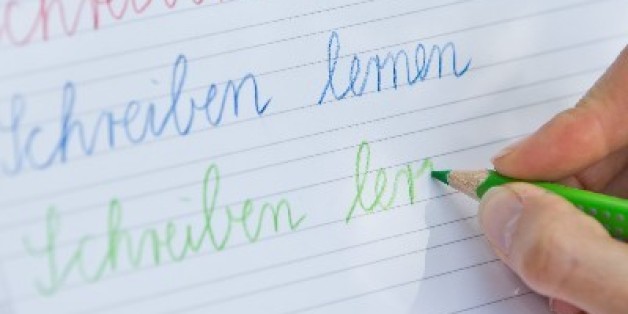 Schreiben
Schreiben lernen
Schreiben ler